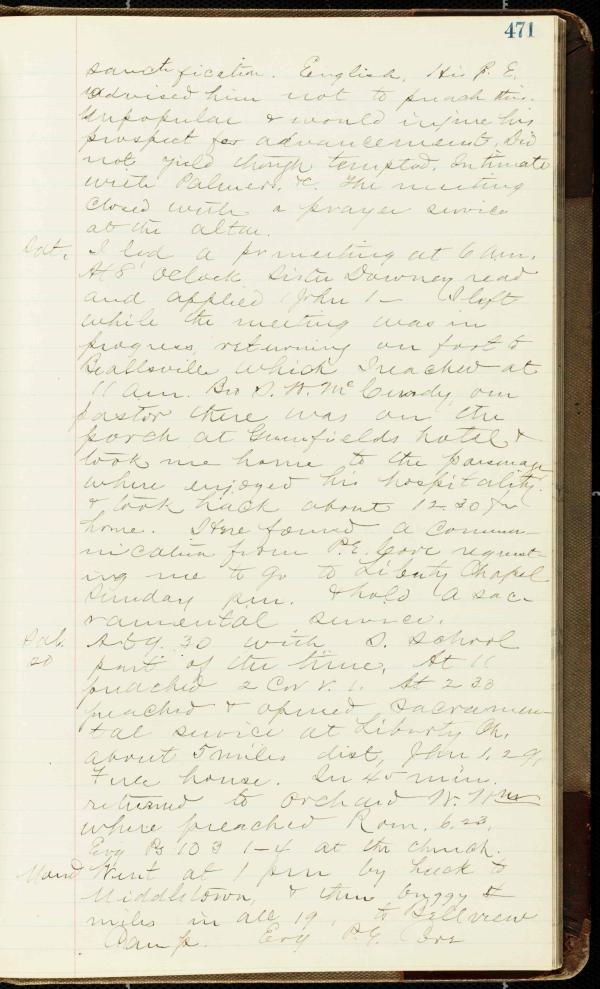 471
sanctification. English. His P. E.
advised him not to preach this.
Unpopular & would injure his
prospect for advancement. Did
not yield though tempted. Intimate
with Palmers, &c. The meeting
closed with a prayer service
at the altar.
Sat. I led a pr meeting at 6 am.
At 8 Oclock Sister Downey read
and applied John 1 - I left
while the meeting was in
progress, returning on foot to
Beallsville which I reached at
11 am. Bro S. W. McCurdy, our
pastor there was on the
porch at Greenfields hotel &
took me home to the parsonage
where enjoyed his hospitality.
& took hack about 12.30 for
home. Here found a commu-
nication from P.E. Core request-
ing me to go to Liberty Chapel
Sunday p.m. & hold a sac-
ramental service.
Sab. At 9.30 with S. School
20 part of the time. At 11
preached 2 Cor V. 1. At 2 30
preached & opened Sacramen-
tal service at Liberty Ch.
about 5 miles dist, John 1. 29,
Full house. In 45 min.
returned to Orchard
where preached Rom. 6.23.
Evg Ps 103 1-4 at the church.
Mond Went at 1 pm by hack to
Middletown, & then buggy
miles in all 19, to Bellview
Camp. Evg P.E. Core